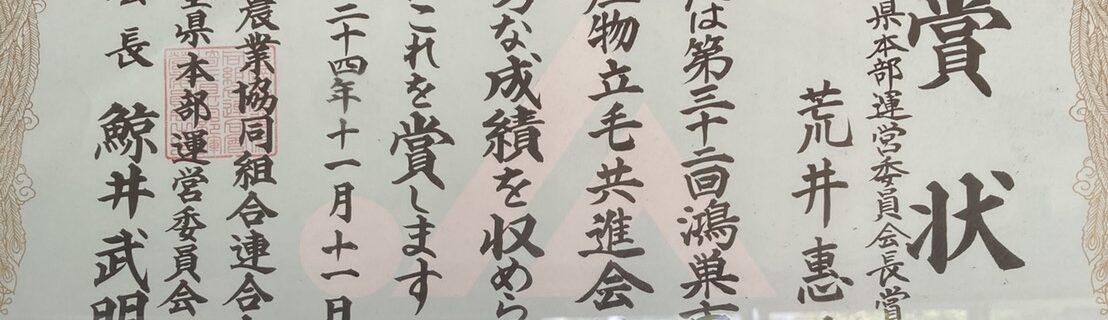 賞状
県本部運営委員会長賞
荒井惠
は第三十二回鴻巣市
物立毛共進会
な成績を収めら
これを賞します
二十四年十一月十一日
農業協同組合連合
県本部運営委員会
長 鯨井武明